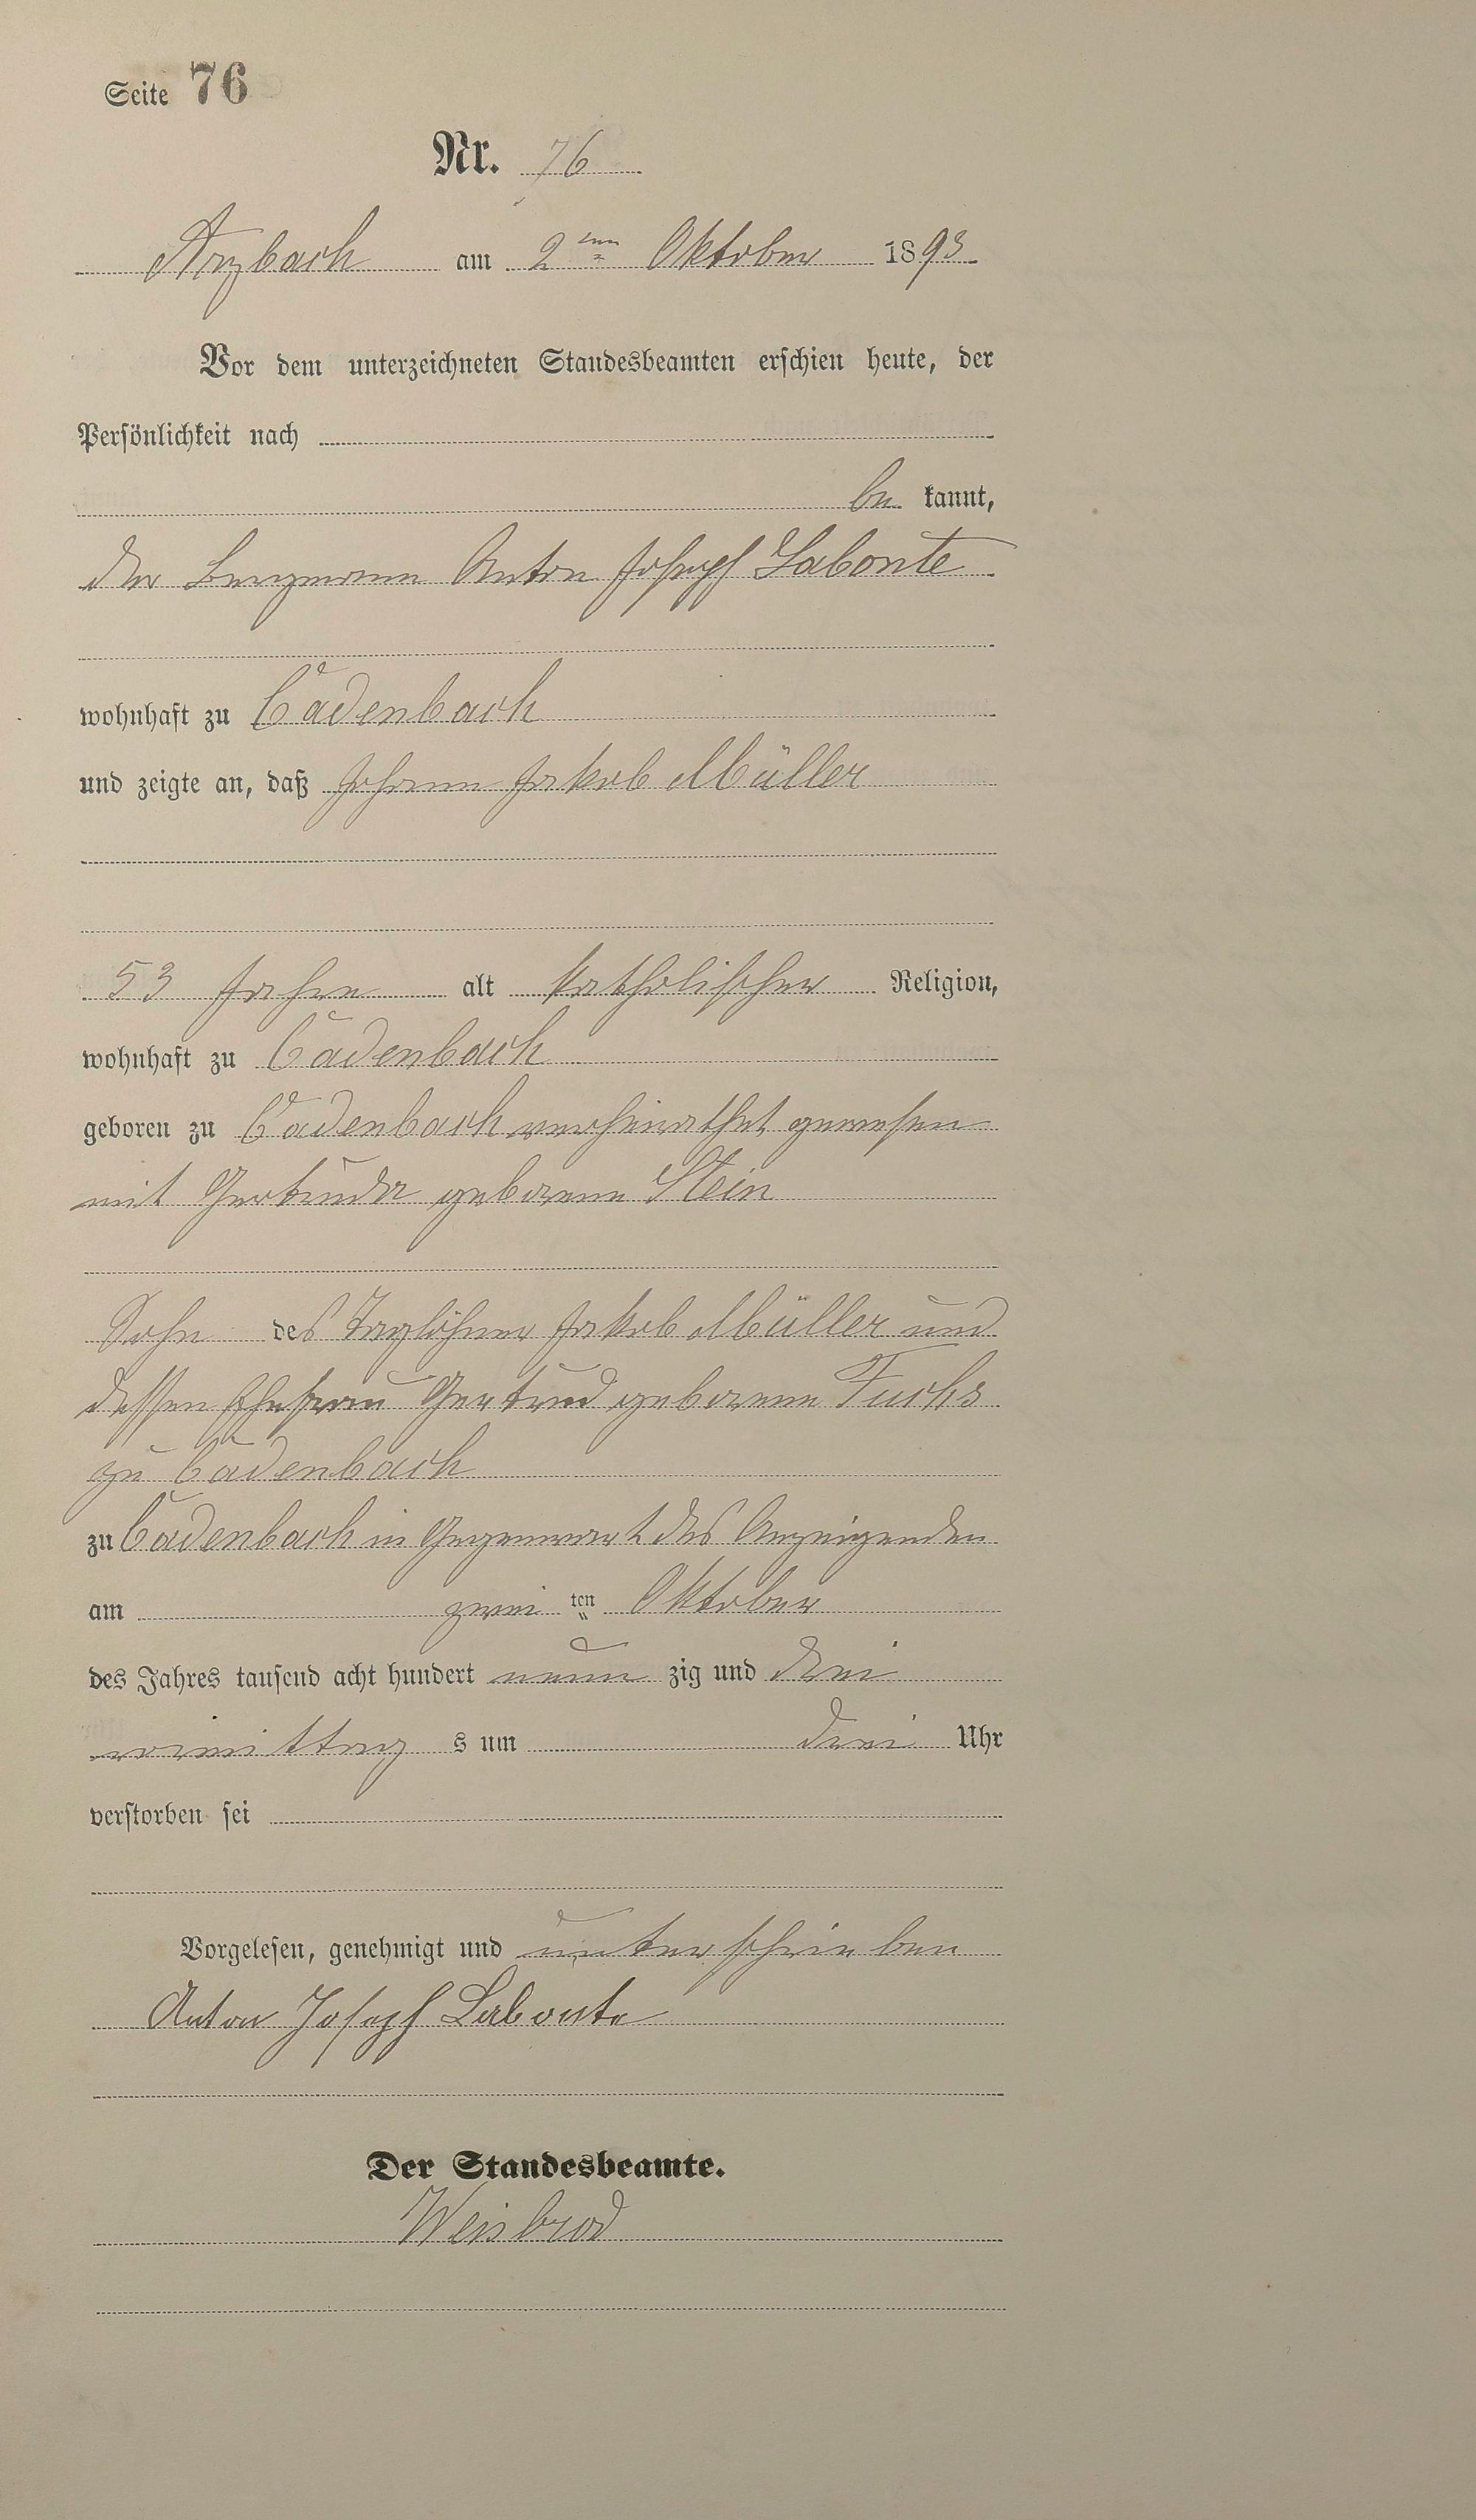 Seite 76
Nr. 76
Arzbach am 2ten Oktober 1893
Vor dem unterzeichneten Standesbeamten erschien heute, der
Persönlichkeit nach
be kannt,
der Bergmann Anton Joseph Labonte
wohnhaft zu Cadenbach
und zeigte an, daß Johann Jakob Müller
53 Jahre alt katholischer Religion,
wohnhaft zu Cadenbach
geboren zu Cadenbach verheirathet gewesen
mit Gertruda geborene Stein
Sohn des Taglöhner Jakob Müller und
dessen Ehefrau Gertrud geborene Fuchs
zu Cadenbach
zu Cadenbach in Gegenwart des Anzeigenden
am zwei ten Oktober
des Jahres tausend acht hundert neun zig und drei
vormittag s um drei Uhr
verstorben sei
Vorgelesen, genehmigt und unterschrieben
Anton Joseph Labonte
Der Standesbeamte.
Weisbrod